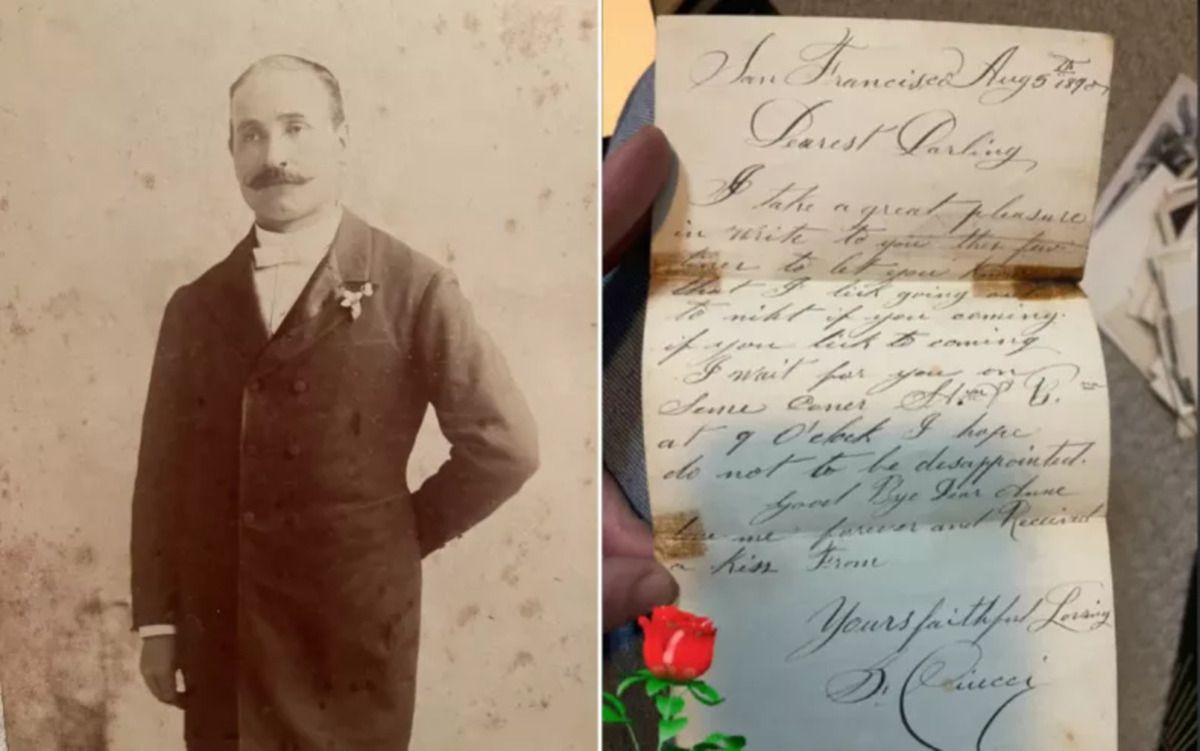 San Francisco Aug 5th 1890
Dearest Darling
I take a great pleasure
in write to you this few
lines to let you know
that I lick going out
to niht if you coming.
if you lick to coming
I wait for you on
Same Coner
at 9 O'clock I hope
do not to be disappointed.
Good Bye Dear Anne
love me forever and Received
a kiss From
Yours faithful Loving
D. Ciucci